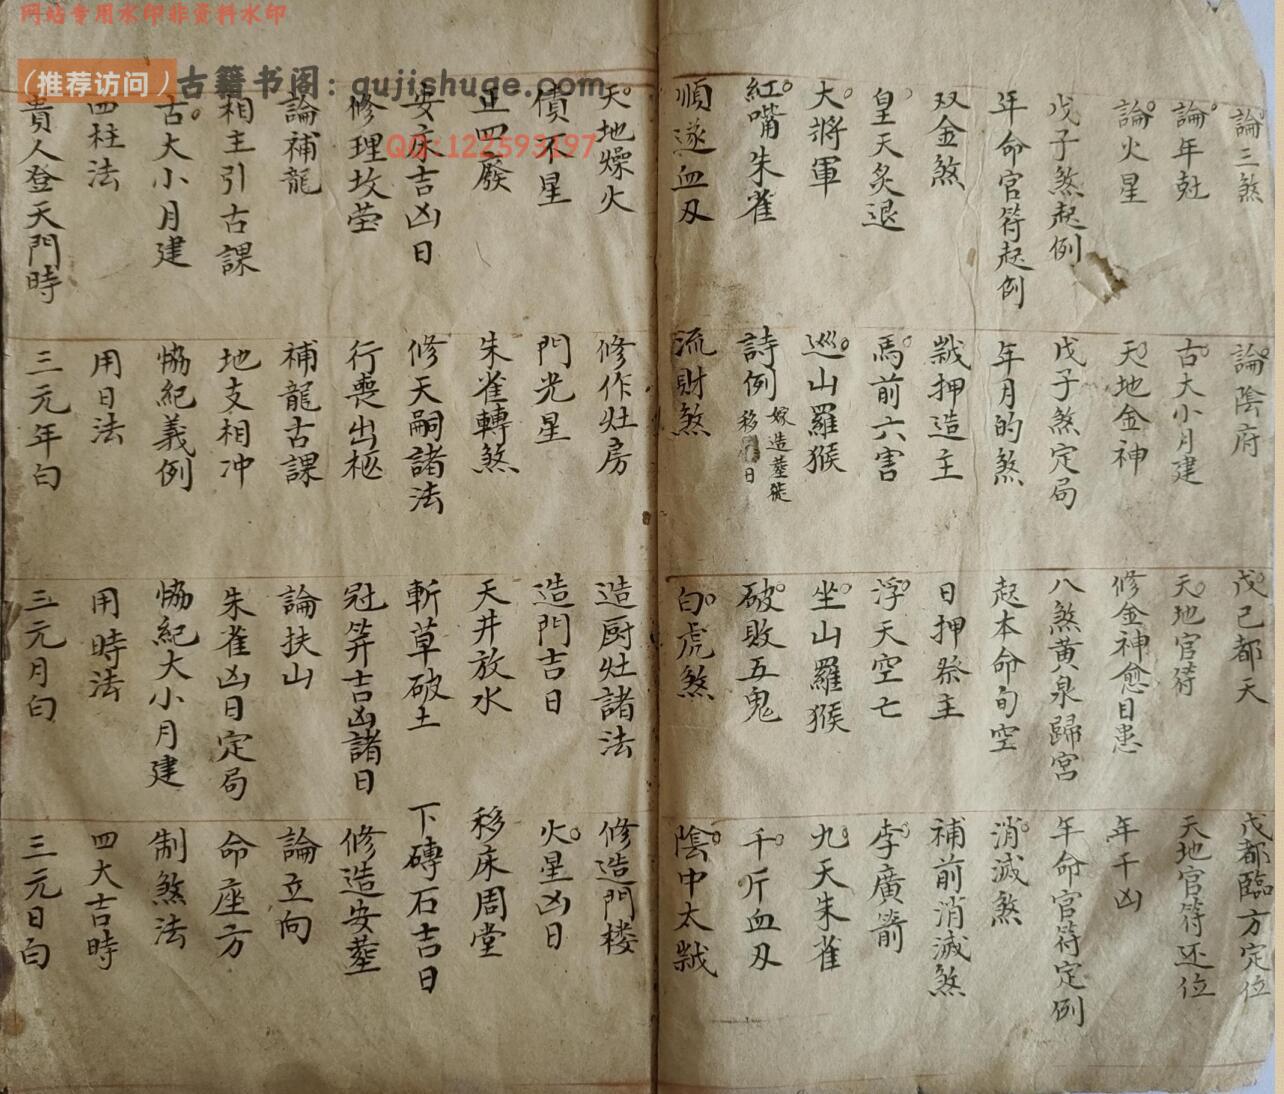 网站专用水印非资料水印
（推荐访问）古籍书阁：gujishuge.com
QQ:122593197
論三煞 論陰府 戊己都天 戊都臨方定位
論年尅 古大小月建 天地官符 天地官符还位
論火星 天地金神 修金神愈目患 年干凶
戊子煞起例 戊子煞定局 八煞黄泉歸宮 年命官符定例
年命官符起例 年月的煞 起本命旬空 消滅煞
双金煞 押造主 日押祭主 補前消滅煞
皇天炙退 馬前六害 浮天空亡 李廣箭
大將軍 巡山羅猴 坐山羅猴 九天朱雀
紅嘴朱雀 詩例 嫁造葬徙 移日 破敗五鬼 千斤血刃
順逆血刃 流財煞 白虎煞 陰中太歲
天地燥火 修作灶房 造厨灶諸法 修造門楼
債不星 門光星 造門吉日 火星凶日
正四廢 朱雀轉煞 天井放水 移床周堂
安床吉凶日 修天嗣諸法 斬草破土 下磚石吉日
修理坟茔 行喪出柩 冠笄吉凶諸日 修造安葬
論補龍 補龍古課 論扶山 論立向
相主引古課 地支相冲 朱雀凶日定局 命座方
古大小月建 恊紀義例 恊紀大小月建 制煞法
四柱法 用日法 用時法 四大吉時
貴人登天門時 三元年白 三元月白 三元日白